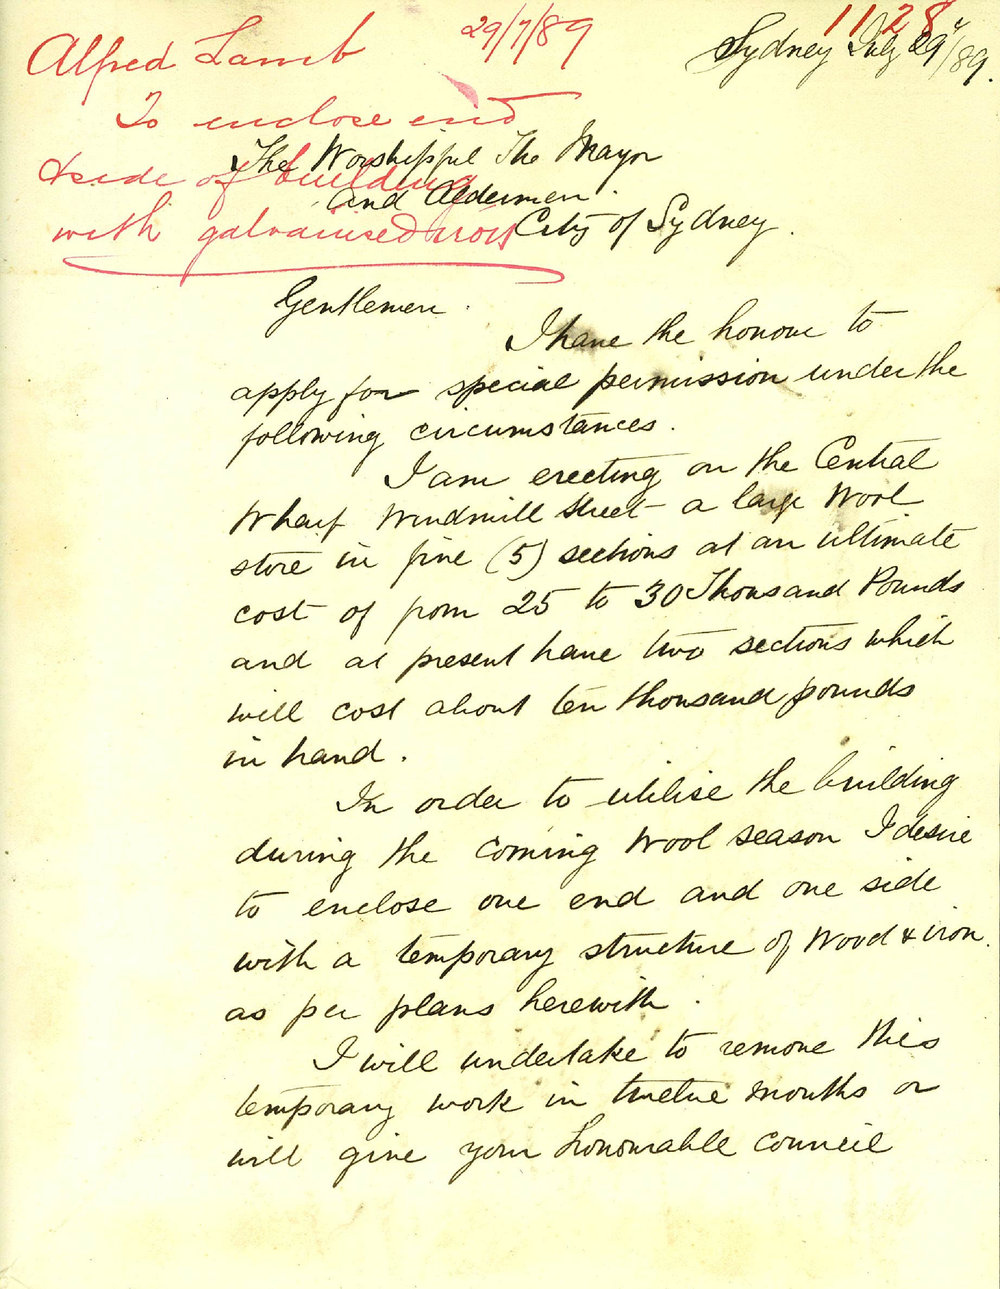 1128
Alfred Lamb 29/7/89
To enclose end
& side of building
with galvanised iron
Sydney July 29th/89.
The Worshipful The Mayor
and Aldermen.
City of Sydney.
Gentlemen.
I have the honour to
apply for special permission under the
following circumstances.
I am erecting on the Central
Wharf Windmill Street a large Wool
store in five (5) sections at an ultimate
cost of from 25 to 30 Thousand Pounds
and at present have two sections which
will cost about ten thousand pounds
in hand.
In order to utilise the building
during the coming Wool season I desire
to enclose one end and one side
with a temporary structure of Wood & iron.
as per plans herewith.
I will undertake to remove this
temporary work in twelve months or
will give your honourable Council